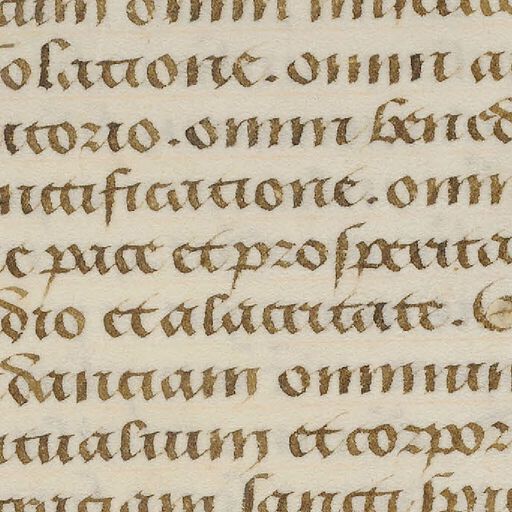 solatione. omni a
utorio. omni bened
nctificatione. omn
e pace et prosperita
dio et alacritate.
danciam omnium
itualium et corpor
sancti spi